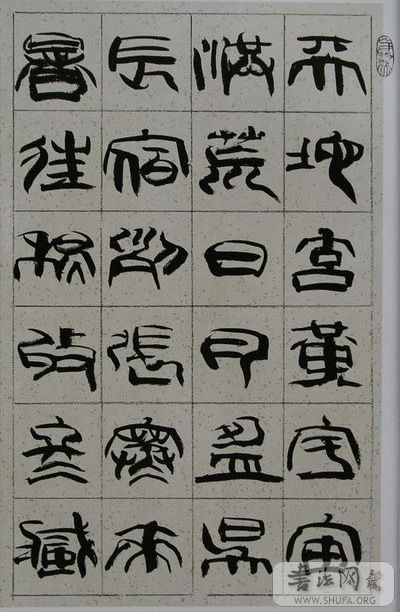 天地玄黃宇宙
洪荒日月盈昃
辰宿列張寒來
暑往秋收冬藏
书法网
WWW.SHUFA.ORG